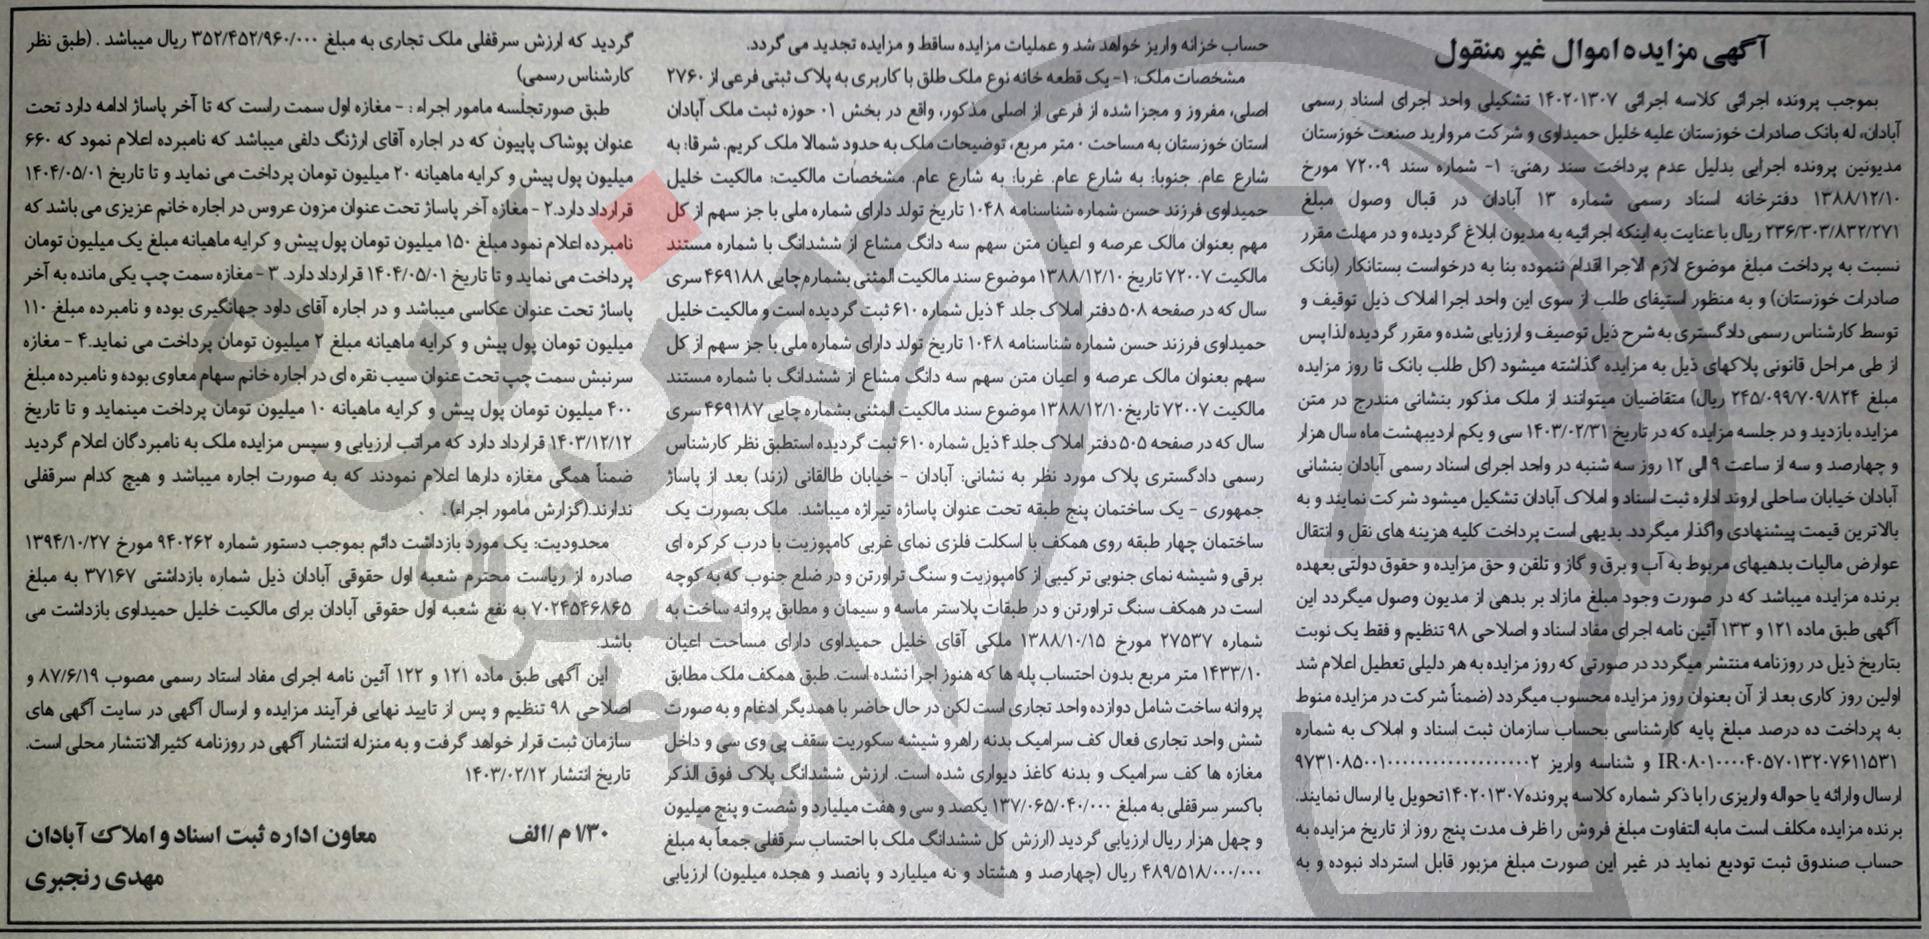 آگهی مزایده اموال غیر منقول
بموجب پرونده اجرائی کلاسه اجرائی ۱۴۰۲۰۱۳۰۷ تشکیلی واحد اجرای اسناد رسمی
آبادان، له بانک صادرات خوزستان علیه خلیل حمیداوی و شرکت مروارید صنعت خوزستان
مدیونین پرونده اجرایی بدلیل عدم پرداخت سند رهنی: ۱- شماره سند ۷۲۰۰۹ مورخ
۱۳۸۸/۱۲/۱۰ دفترخانه اسناد رسمی شماره ۱۳ آبادان در قبال وصول مبلغ
۲۳۶/۳۰۳/۸۳۲/۲۷۱ ریال با عنایت به اینکه اجرائیه به مدیون ابلاغ گردیده و در مهلت مقرر
نسبت به پرداخت مبلغ موضوع لازم الاجرا اقدام ننموده بنا به درخواست بستانکار (بانک
صادرات خوزستان) و به منظور استیفای طلب از سوی این واحد اجرا املاک ذیل توقیف و
توسط کارشناس رسمی دادگستری به شرح ذیل توصیف و ارزیابی شده و مقرر گردیده لذا پس
از طی مراحل قانونی پلاکهای ذیل به مزایده گذاشته میشود (کل طلب بانک تا روز مزایده
مبلغ ۲۴۵/۰۹۹/۷۰۹/۸۲۴ ریال) متقاضیان میتوانند از ملک مذکور بنشانی مندرج در متن
مزایده بازدید و در جلسه مزایده که در تاریخ ۱۴۰۳/۰۲/۳۱ سی و یکم اردیبهشت ماه سال هزار
و چهارصد و سه از ساعت ۹ الی ۱۲ روز سه شنبه در واحد اجرای اسناد رسمی آبادان بنشانی
آبادان خیابان ساحلی اروند اداره ثبت اسناد و املاک آبادان تشکیل میشود شرکت نمایند و به
بالاترین قیمت پیشنهادی واگذار میگردد. بدیهی است پرداخت کلیه هزینه های نقل و انتقال
عوارض مالیات بدهیهای مربوط به آب و برق و گاز و تلفن و حق مزایده و حقوق دولتی بعهده
برنده مزایده میباشد که در صورت وجود مبلغ مازاد بر بدهی از مدیون وصول میگردد این
آگهی طبق ماده ۱۲۱ و ۱۳۳ آئین نامه اجرای مفاد اسناد و اصلاحی ۹۸ تنظیم و فقط یک نوبت
بتاریخ ذیل در روزنامه منتشر میگردد در صورتی که روز مزایده به هر دلیلی تعطیل اعلام شد
اولین روز کاری بعد از آن بعنوان روز مزایده محسوب میگردد (ضمناً شرکت در مزایده منوط
به پرداخت ده درصد مبلغ پایه کارشناسی بحساب سازمان ثبت اسناد و املاک به شماره
IR۰۸۰۱۰۰۰۰۴۰۵۷۰۱۳۲۰۷۶۱۱۵۳۱ و شناسه واریز ۹۷۳۱۰۸۵۰۰۱۰۰۰۰۰۰۰۰۰۰۰۰۰۰۰۰۰۰۲
ارسال وارائه یا حواله واریزی را با ذکر شماره کلاسه پرونده۱۴۰۲۰۱۳۰۷تحویل یا ارسال نمایند.
برنده مزایده مکلف است مابه التفاوت مبلغ فروش را ظرف مدت پنج روز از تاریخ مزایده به
حساب صندوق ثبت تودیع نماید در غیر این صورت مبلغ مزبور قابل استرداد نبوده و به
حساب خزانه واریز خواهد شد و عملیات مزایده ساقط و مزایده تجدید می گردد.
مشخصات ملک: ۱- یک قطعه خانه نوع ملک طلق با کاربری به پلاک ثبتی فرعی از ۲۷۶۰
اصلی، مفروز و مجزا شده از فرعی از اصلی مذکور، واقع در بخش ۰۱ حوزه ثبت ملک آبادان
استان خوزستان به مساحت ۰ متر مربع، توضیحات ملک به حدود شمالا ملک کریم. شرقا: به
شارع عام. جنوبا: به شارع عام. غربا: به شارع عام. مشخصات مالکیت: مالکیت خلیل
حمیداوی فرزند حسن شماره شناسنامه ۱۰۴۸ تاریخ تولد دارای شماره ملی با جز سهم از کل
مهم بعنوان مالک عرصه و اعیان متن سهم سه دانگ مشاع از ششدانگ با شماره مستند
مالکیت ۷۲۰۰۷ تاریخ ۱۳۸۸/۱۲/۱۰ موضوع سند مالکیت المثنی بشماره چاپی ۴۶۹۱۸۸ سری
سال که در صفحه ۵۰۸ دفتر املاک جلد ۴ ذیل شماره ۶۱۰ ثبت گردیده است و مالکیت خلیل
حمیداوی فرزند حسن شماره شناسنامه ۱۰۴۸ تاریخ تولد دارای شماره ملی با جز سهم از کل
سهم بعنوان مالک عرصه و اعیان متن سهم سه دانگ مشاع از ششدانگ با شماره مستند
مالکیت ۷۲۰۰۷ تاریخ۱۳۸۸/۱۲/۱۰ موضوع سند مالکیت المثنی بشماره چاپی ۴۶۹۱۸۷ سری
سال که در صفحه ۵۰۵ دفتر املاک جلد۴ ذیل شماره ۶۱۰ ثبت گردیده استطبق نظر کارشناس
رسمی دادگستری پلاک مورد نظر به نشانی: آبادان - خیابان طالقانی (زند) بعد از پاساژ
جمهوری - یک ساختمان پنج طبقه تحت عنوان پاساژه تیراژه میباشد. ملک بصورت یک
ساختمان چهار طبقه روی همکف با اسکلت فلزی نمای غربی کامپوزیت با درب کرکره ای
برقی و شیشه نمای جنوبی ترکیبی از کامپوزیت و سنگ تراورتن و در ضلع جنوب که به کوچه
است در همکف سنگ تراورتن و در طبقات پلاستر ماسه و سیمان و مطابق پروانه ساخت به
شماره ۲۷۵۳۷ مورخ ۱۳۸۸/۱۰/۱۵ ملکی آقای خلیل حمیداوی دارای مساحت اعیان
۱۴۳۳/۱۰ متر مربع بدون احتساب پله ها که هنوز اجرا نشده است. طبق همکف ملک مطابق
پروانه ساخت شامل دوازده واحد تجاری است لکن در حال حاضر با همدیگر ادغام و به صورت
شش واحد تجاری فعال کف سرامیک بدنه راهرو شیشه سکوریت سقف پی وی سی و داخل
مغازه ها کف سرامیک و بدنه کاغذ دیواری شده است. ارزش ششدانگ پلاک فوق الذکر
باکسر سرقفلی به مبلغ ۱۳۷/۰۶۵/۰۴۰/۰۰۰ یکصد و سی و هفت میلیارد و شصت و پنج میلیون
و چهل هزار ریال ارزیابی گردید (ارزش کل ششدانگ ملک با احتساب سرقفلی جمعاً به مبلغ
۴۸۹/۵۱۸/۰۰۰/۰۰۰ ریال (چهارصد و هشتاد و نه میلیارد و پانصد و هجده میلیون) ارزیابی
گردید که ارزش سرقفلی ملک تجاری به مبلغ ۳۵۲/۴۵۲/۹۶۰/۰۰۰ ریال میباشد . (طبق نظر
کارشناس رسمی)
طبق صورتجلسه مامور اجراء : - مغازه اول سمت راست که تا آخر پاساژ ادامه دارد تحت
عنوان پوشاک پاپیون که در اجاره آقای ارژنگ دلفی میباشد که نامبرده اعلام نمود که ۶۶۰
میلیون پول پیش و کرایه ماهیانه ۲۰ میلیون تومان پرداخت می نماید و تا تاریخ ۱۴۰۴/۰۵/۰۱
قرارداد دارد.۲ - مغازه آخر پاساژ تحت عنوان مزون عروس در اجاره خانم عزیزی می باشد که
نامبرده اعلام نمود مبلغ ۱۵۰ میلیون تومان پول پیش و کرایه ماهیانه مبلغ یک میلیون تومان
پرداخت می نماید و تا تاریخ ۱۴۰۴/۰۵/۰۱ قرارداد دارد. ۳ - مغازه سمت چپ یکی مانده به آخر
پاساژ تحت عنوان عکاسی میباشد و در اجاره آقای داود جهانگیری بوده و نامبرده مبلغ ۱۱۰
میلیون تومان پول پیش و کرایه ماهیانه مبلغ ۲ میلیون تومان پرداخت می نماید.۴ - مغازه
سرنبش سمت چپ تحت عنوان سیب نقره ای در اجاره خانم سهام معاوی بوده و نامبرده مبلغ
۴۰۰ میلیون تومان پول پیش و کرایه ماهیانه ۱۰ میلیون تومان پرداخت مینماید و تا تاریخ
۱۴۰۳/۱۲/۱۲ قرارداد دارد که مراتب ارزیابی و سپس مزایده ملک به نامبردگان اعلام گردید
ضمناً همگی مغازه دارها اعلام نمودند که به صورت اجاره میباشد و هیچ کدام سرقفلی
ندارند.(گزارش مامور اجراء) .
محدودیت: یک مورد بازداشت دائم بموجب دستور شماره ۹۴۰۲۶۲ مورخ ۱۳۹۴/۱۰/۲۷
صادره از ریاست محترم شعبه اول حقوقی آبادان ذیل شماره بازداشتی ۳۷۱۶۷ به مبلغ
۷۰۲۴۵۴۶۸۶۵ به نفع شعبه اول حقوقی آبادان برای مالکیت خلیل حمیداوی بازداشت می
باشد.
این آگهی طبق ماده ۱۲۱ و ۱۲۲ آئین نامه اجرای مفاد استاد رسمی مصوب ۸۷/۶/۱۹ و
اصلاحی ۹۸ تنظیم و پس از تایید نهایی فرآیند مزایده و ارسال آگهی در سایت آگهی های
سازمان ثبت قرار خواهد گرفت و به منزله انتشار آگهی در روزنامه کثیرالانتشار محلی است.
تاریخ انتشار ۱۴۰۳/۰۲/۱۲
۱/۳۰ م /الف
معاون اداره ثبت اسناد و املاک آبادان
مهدی رنجبری